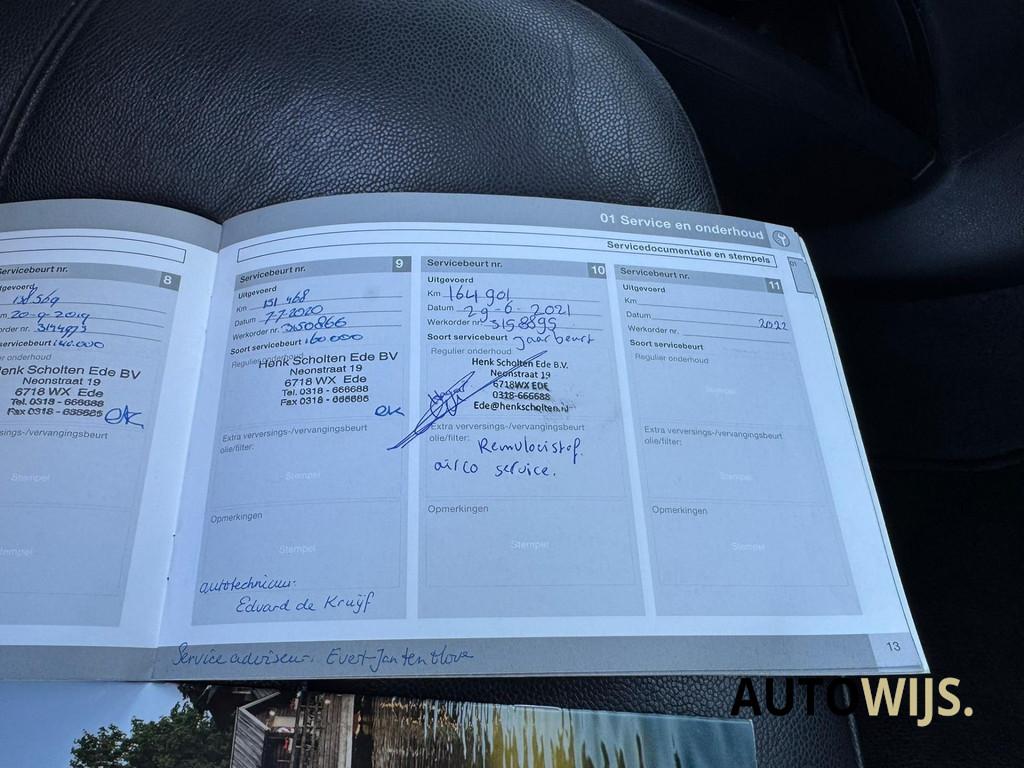 01 Service en onderhoud
Servicedocumentatie en stempels
01
Servicebeurt nr. 8
Uitgevoerd
20-9-2019
order nr.
servicebeurt 140.000
ier onderhoud
Henk Scholten Ede BV
Neonstraat 19
6718 WX Ede
Tel. 0318 - 666688
Fax 0318 -
ek
verversings-/vervangingsbeurt
Stempel
Stempel
Servicebeurt nr. 9
Uitgevoerd
Km 151 468
Datum 7-7-2020
Werkorder nr. 3150866
Soort servicebeurt 160 000
Regulier onderhoud
Henk Scholten Ede BV
Neonstraat 19
6718 WX Ede
Tel. 0318 - 666688
Fax 0318 - 666686
ek
Extra verversings-/vervangingsbeurt
olie/filter:
Stempel
Opmerkingen
Stempel
autotechnicus:
Eduard de Kruijf
Servicebeurt nr. 10
Uitgevoerd
Km 164 901
Datum 29-6-2021
Werkorder nr. 3158895
Soort servicebeurt jaarbeurt
Regulier onderhoud
Henk Scholten Ede B.V.
Neonstraat 19
6718WX EDE
0318-666688
Ede@henkscholten.nl
Extra verversings-/vervangingsbeurt
olie/filter: Remvloeistof.
airco service.
Opmerkingen
Stempel
Servicebeurt nr. 11
Uitgevoerd
Km
Datum 2022
Werkorder nr.
Soort servicebeurt
Regulier onderhoud
Extra verversings-/vervangingsbeurt
olie/filter:
Stempel
Opmerkingen
Stempel
Service adviseur: Evert-Jan ten Hove
13
AUTOWIJS.